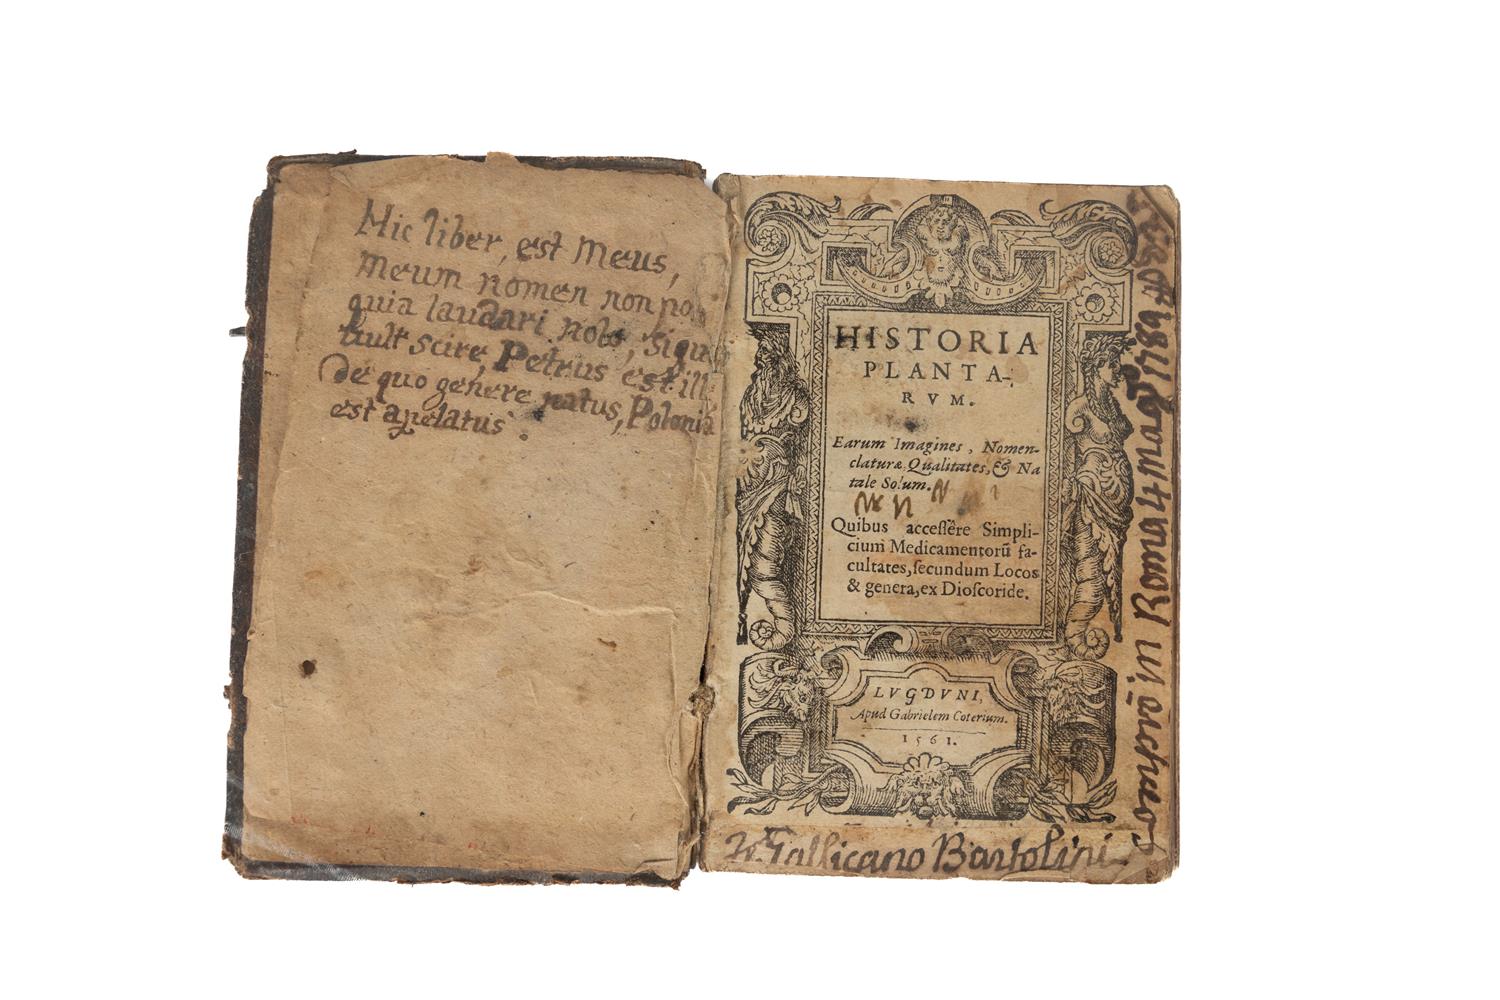 Hic liber, est meus,
meum nomen non po
quia laudari nolo, si qu
vult scire, Petrus est ill
De quo genere natus, Polonia
est apelatus
HISTORIA
PLANTA-
RVM.
Earum Imagines, Nomen-
claturæ Qualitates, & Na
tale Solum.
Quibus accessêre Simpli-
cium Medicamentorũ fa-
cultates, secundum Locos
& genera, ex Dioscoride.
LVGDVNI,
Apud Gabrielem Coterium.
1561.
Gallicano Bartolini
Roma 4 marzo 1789